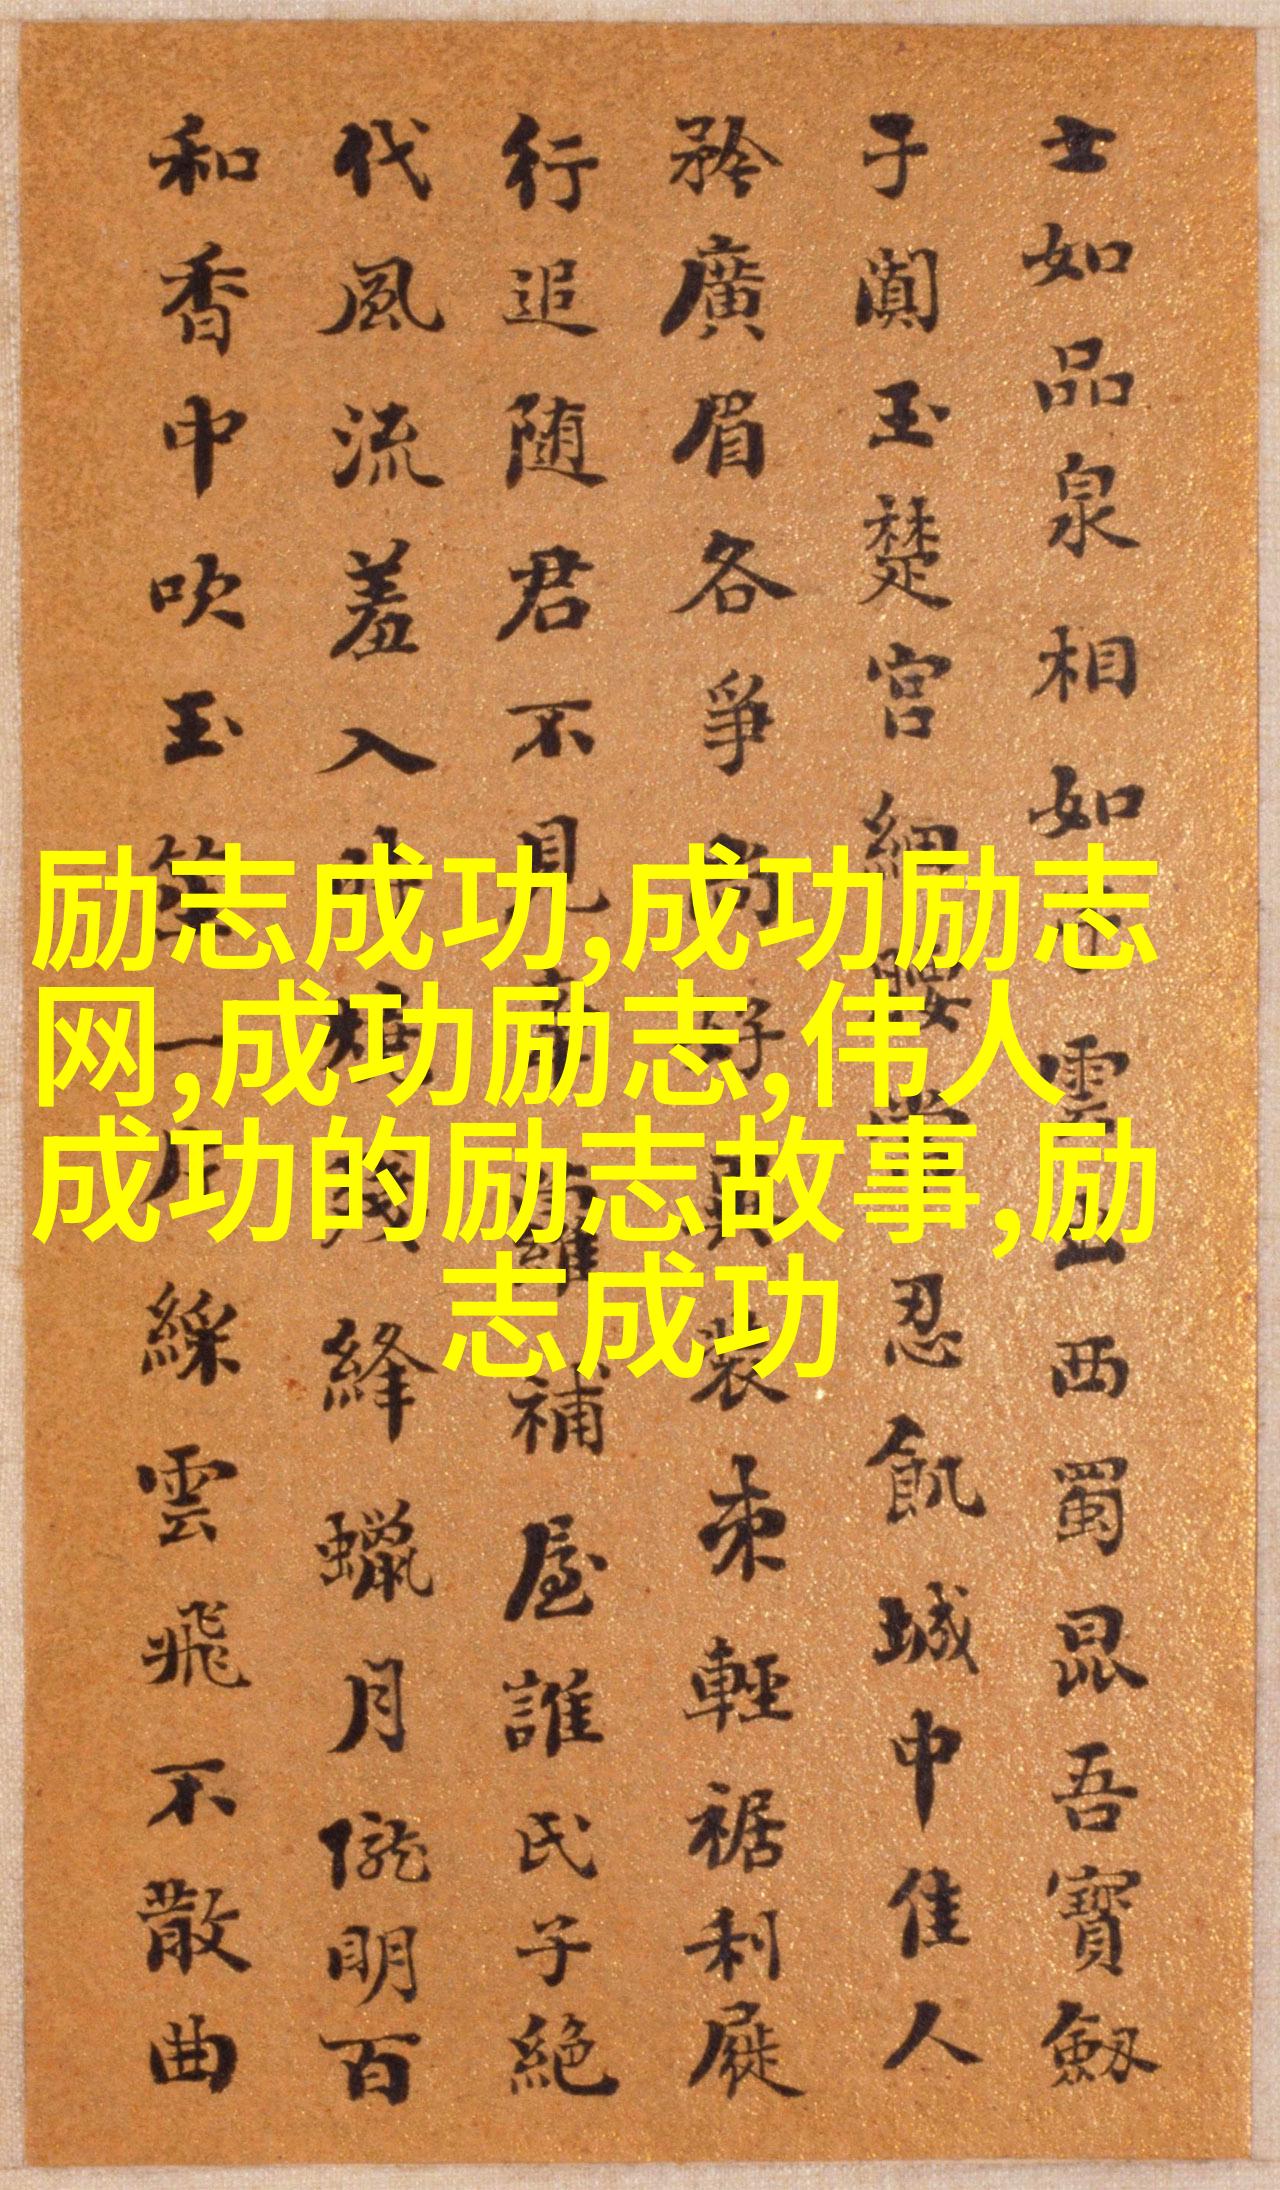 士如品泉相如雲西蜀昆吾寶劔
子闐玉楚宮細腰忍飢城中佳人
矜廣眉各爭尚好裝束輕裾利屣
行追随君不見補屋誰氏子絶
代風流羞入時絳蠟月朧明百
和香中吹玉一綵雲飛不散曲
励志成功,成功励志
网,成功励志,伟人
成功的励志故事,励
志成功